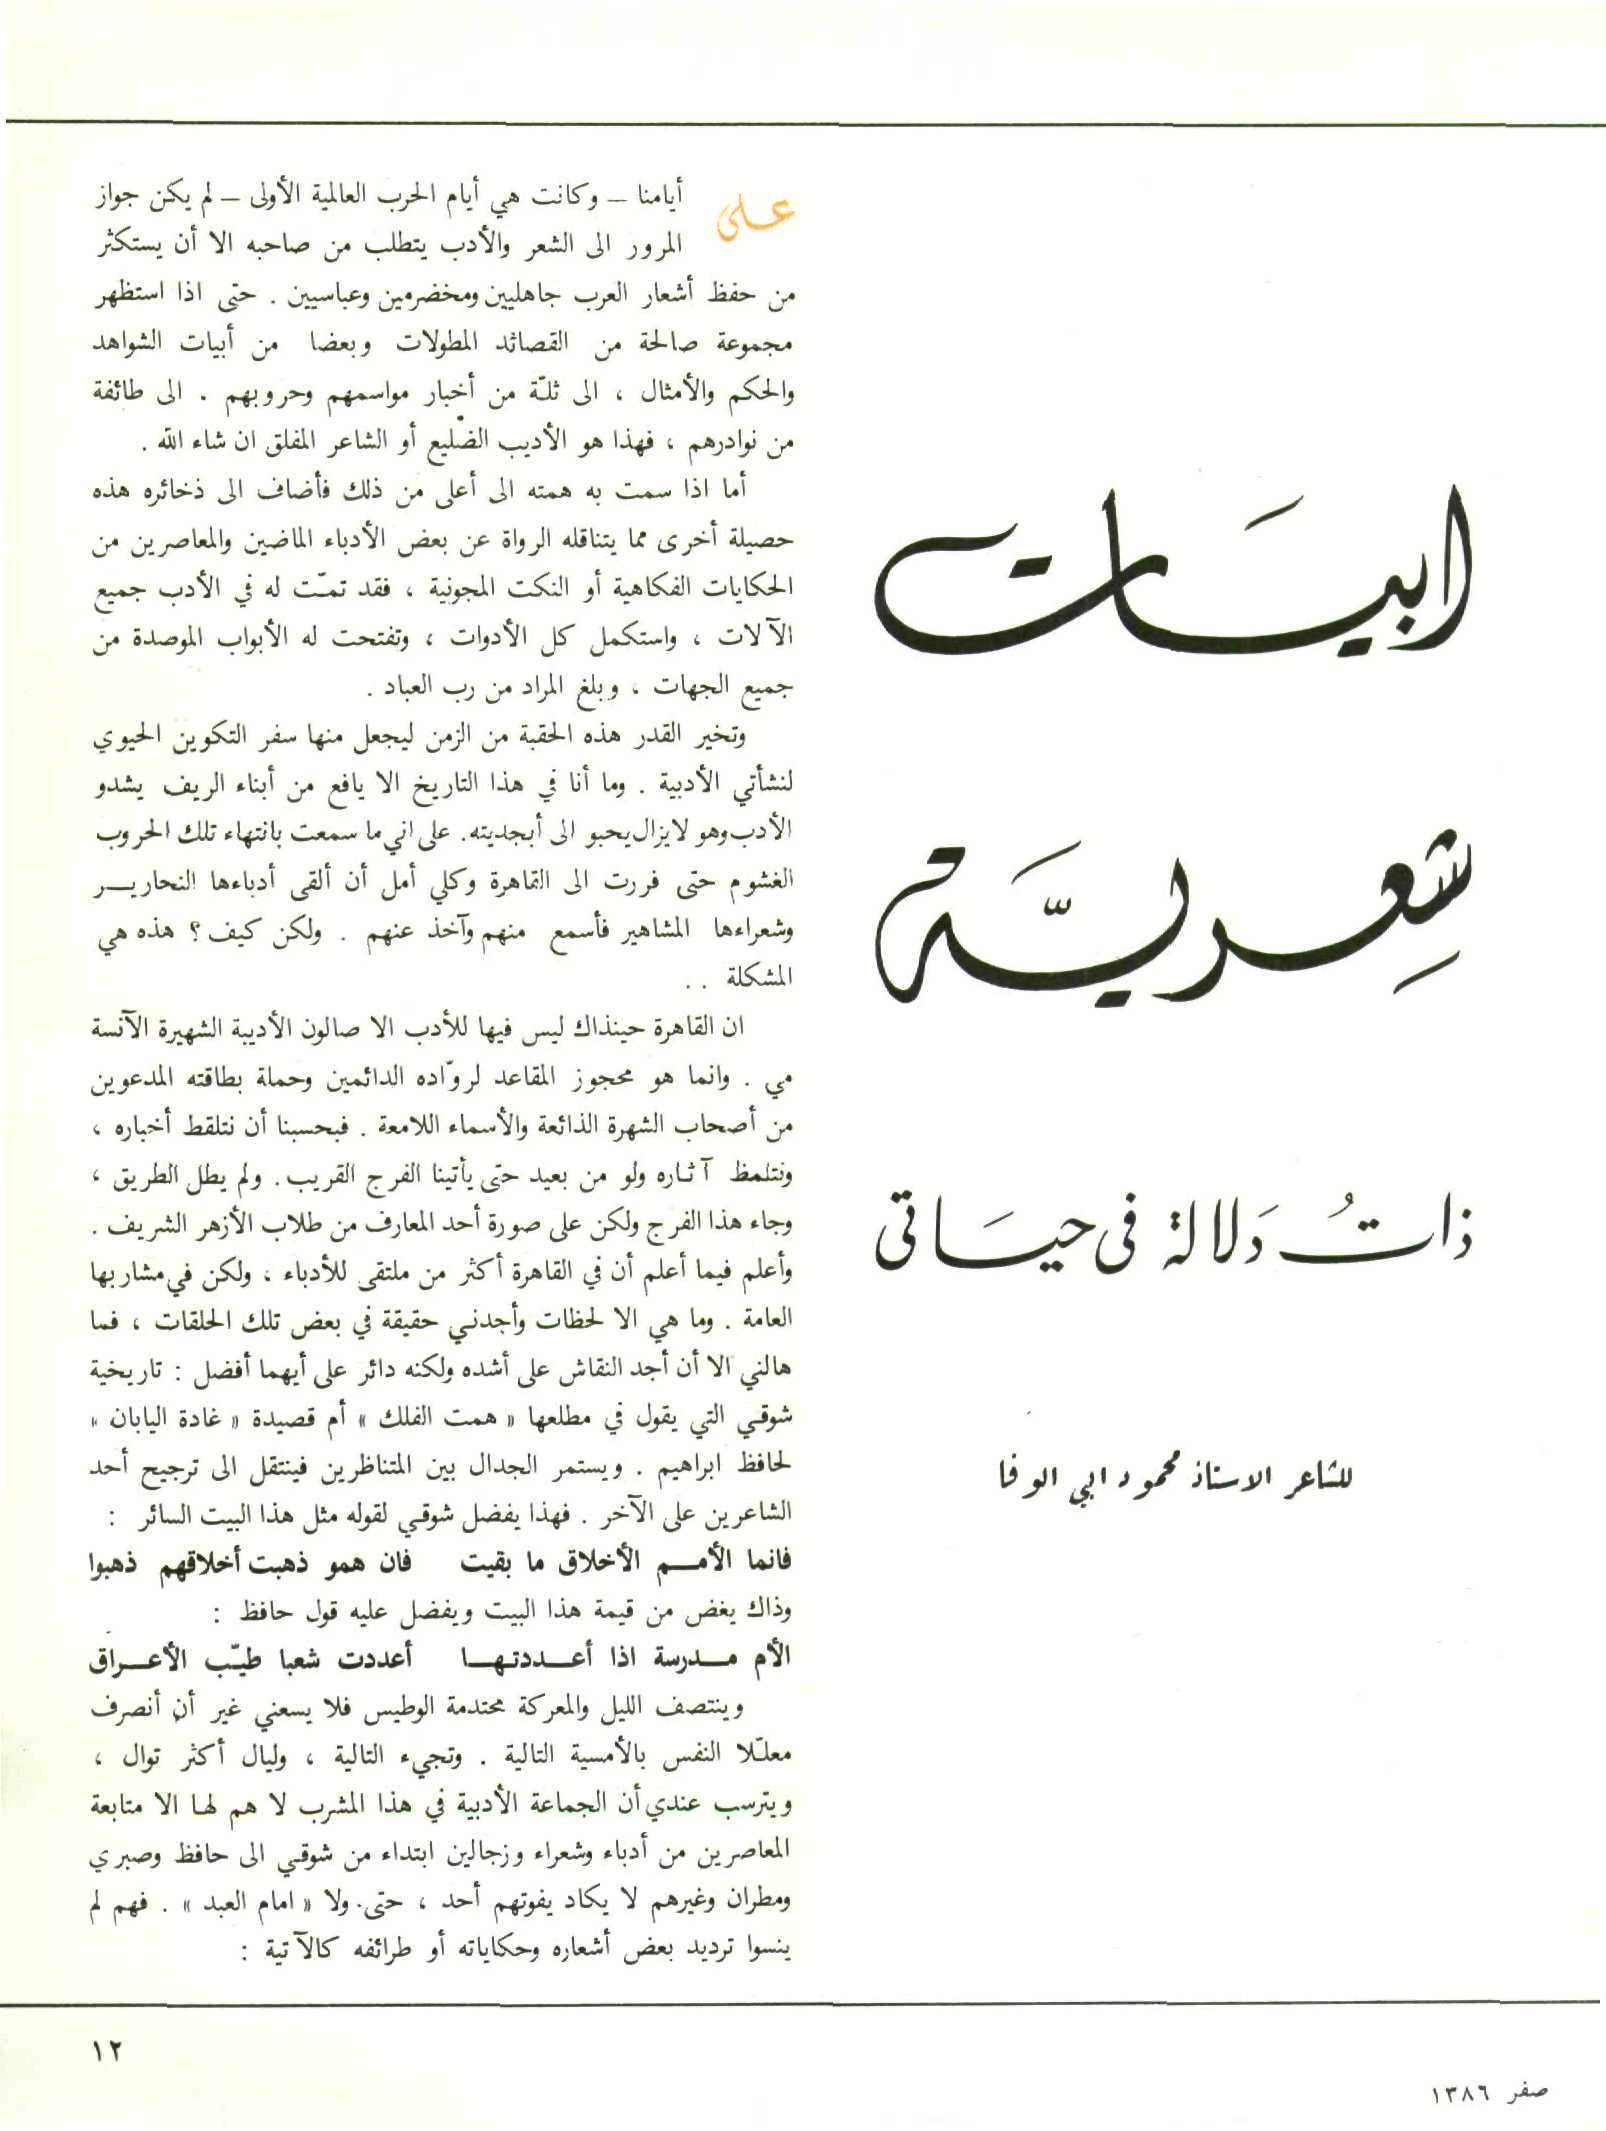 ابيات
شعرية
ذات دلالة في حياتي
للشاعر الاستاذ محمود ابي الوفا
على أيامنا – وكانت هي أيام الحرب العالمية الأولى – لم يكن جواز
المرور الى الشعر والأدب يتطلب من صاحبه الا أن يستكثر
من حفظ أشعار العرب جاهليين ومخضرمين وعباسيين . حتى اذا استظهر
مجموعة صالحة من القصائد المطولات وبعضا من أبيات الشواهد
والحكم والأمثال ، الى ثلّة من أخبار مواسمهم وحروبهم . الى طائفة
من نوادرهم ، فهذا هو الأديب الضّليع أو الشاعر المفلق ان شاء الله .
أما اذا سمت به همته الى أعلى من ذلك فأضاف الى ذخائره هذه
حصيلة أخرى مما يتناقله الرواة عن بعض الأدباء الماضين والمعاصرين من
الحكايات الفكاهية أو النكت المجونية ، فقد تمّت له في الأدب جميع
الآلات ، واستكمل كل الأدوات ، وتفتحت له الأبواب الموصدة من
جميع الجهات ، وبلغ المراد من رب العباد .
وتخير القدر هذه الحقبة من الزمن ليجعل منها سفر التكوين الحيوي
لنشأتي الأدبية . وما أنا في هذا التاريخ الا يافع من أبناء الريف يشدو
الأدب وهو لا يزال يحبو الى أبجديته . على اني ما سمعت بانتهاء تلك الحروب
الغشوم حتى فررت الى القاهرة وكلي أمل أن ألقى أدباءها النحاريــر
وشعراءها المشاهير فأسمع منهم وآخذ عنهم . ولكن كيف ؟ هذه هي
المشكلة . .
ان القاهرة حينذاك ليس فيها للأدب الا صالون الأديبة الشهيرة الآنسة
مي . وانما هو محجوز المقاعد لروّاده الدائمين وحملة بطاقته المدعوين
من أصحاب الشهرة الذائعة والأسماء اللامعة . فبحسبنا أن نتلقط أخباره ،
ونتلمظ آثاره ولو من بعيد حتى يأتينا الفرج القريب . ولم يطل الطريق ،
وجاء هذا الفرج ولكن على صورة أحد المعارف من طلاب الأزهر الشريف .
وأعلم فيما أعلم أن في القاهرة أكثر من ملتقى للأدباء ، ولكن في مشاربها
العامة . وما هي الا لحظات وأجدني حقيقة في بعض تلك الحلقات ، فما
هالني الا أن أجد النقاش على أشده ولكنه دائر على أيهما أفضل : تاريخية
شوقي التي يقول في مطلعها « همت الفلك » أم قصيدة « غادة اليابان »
لحافظ ابراهيم . ويستمر الجدال بين المتناظرين فينتقل الى ترجيح أحد
الشاعرين على الآخر . فهذا يفضل شوقي لقوله مثل هذا البيت السائر :
فانما الأمــم الأخلاق ما بقيت فان همو ذهبت أخلاقهم ذهبوا
وذاك يغض من قيمة هذا البيت ويفضل عليه قول حافظ :
الأم مــدرسة اذا أعــددتهــا أعددت شعبا طيّب الأعــراق
وينتصف الليل والمعركة محتدمة الوطيس فلا يسعني غير أن أنصرف
معلّلا النفس بالأمسية التالية . وتجيء التالية ، وليال أكثر توال ،
ويترسب عندي أن الجماعة الأدبية في هذا المشرب لا هم لها الا متابعة
المعاصرين من أدباء وشعراء وزجالين ابتداء من شوقي الى حافظ وصبري
ومطران وغيرهم لا يكاد يفوتهم أحد ، حتى ولا « امام العبد » . فهم لم
ينسوا ترديد بعض أشعاره وحكاياته أو طرائفه كالآتية :
١٢
صفر ١٣٨٦